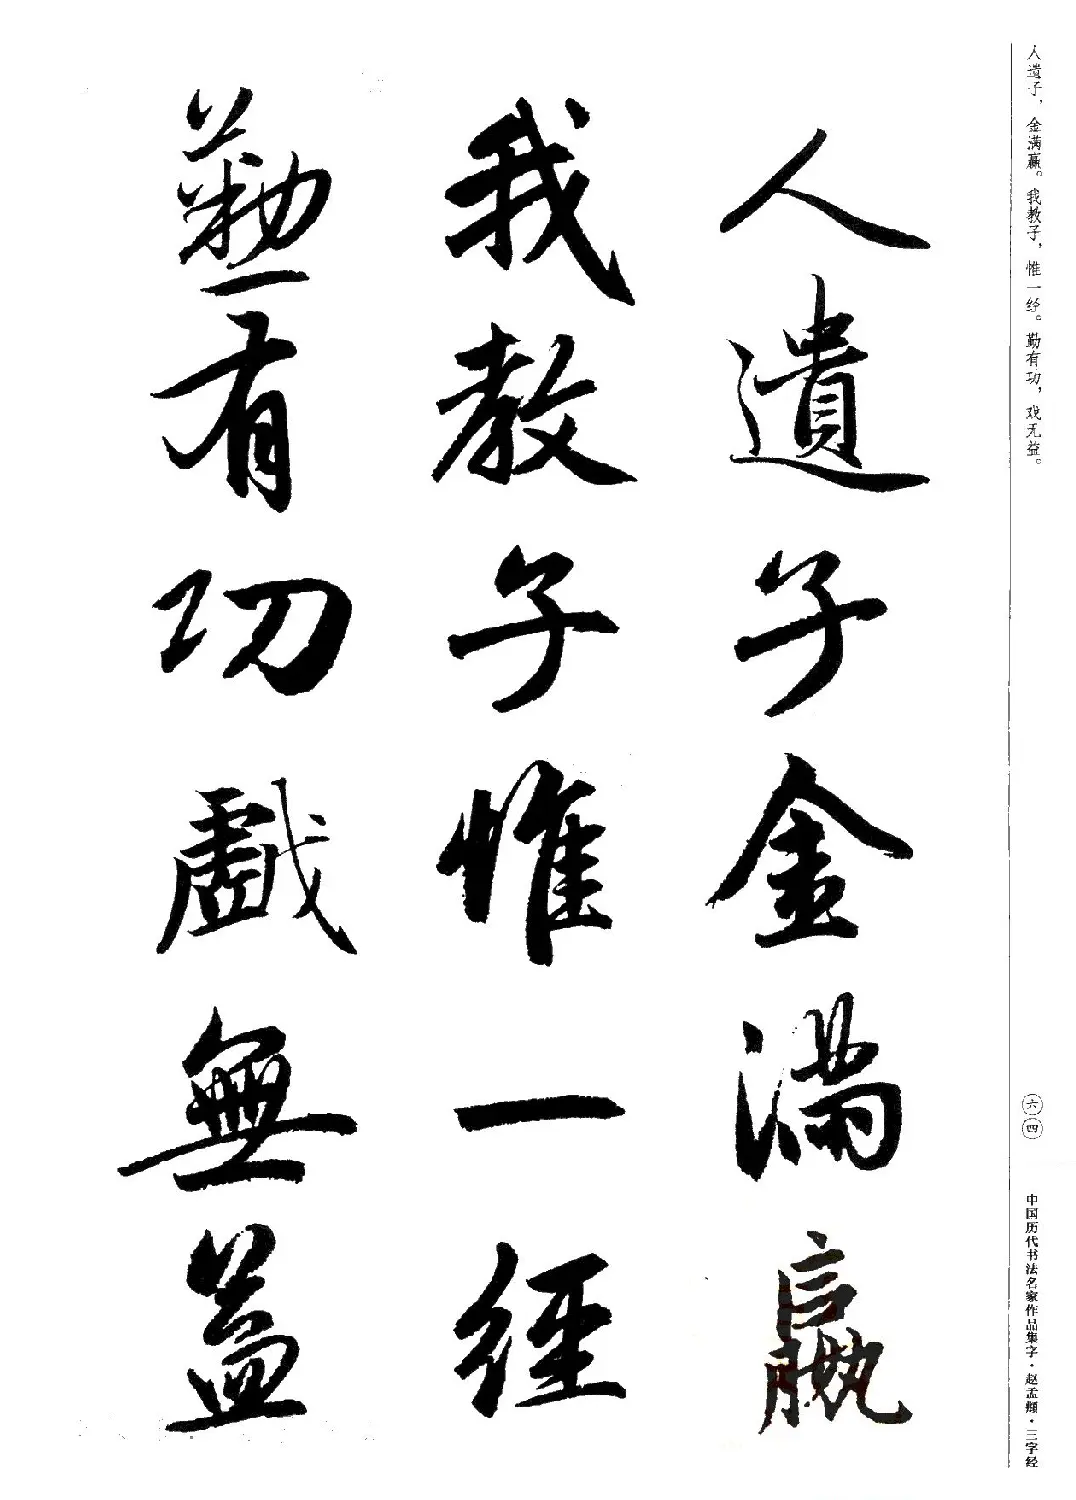 人遗子，金满赢。我教子，惟一经。勤有功，戏无益。
人遺子金滿嬴
我教子惟一經
勤有功戲無益
六四
中国历代书法名家作品集字·赵孟頫·三字经